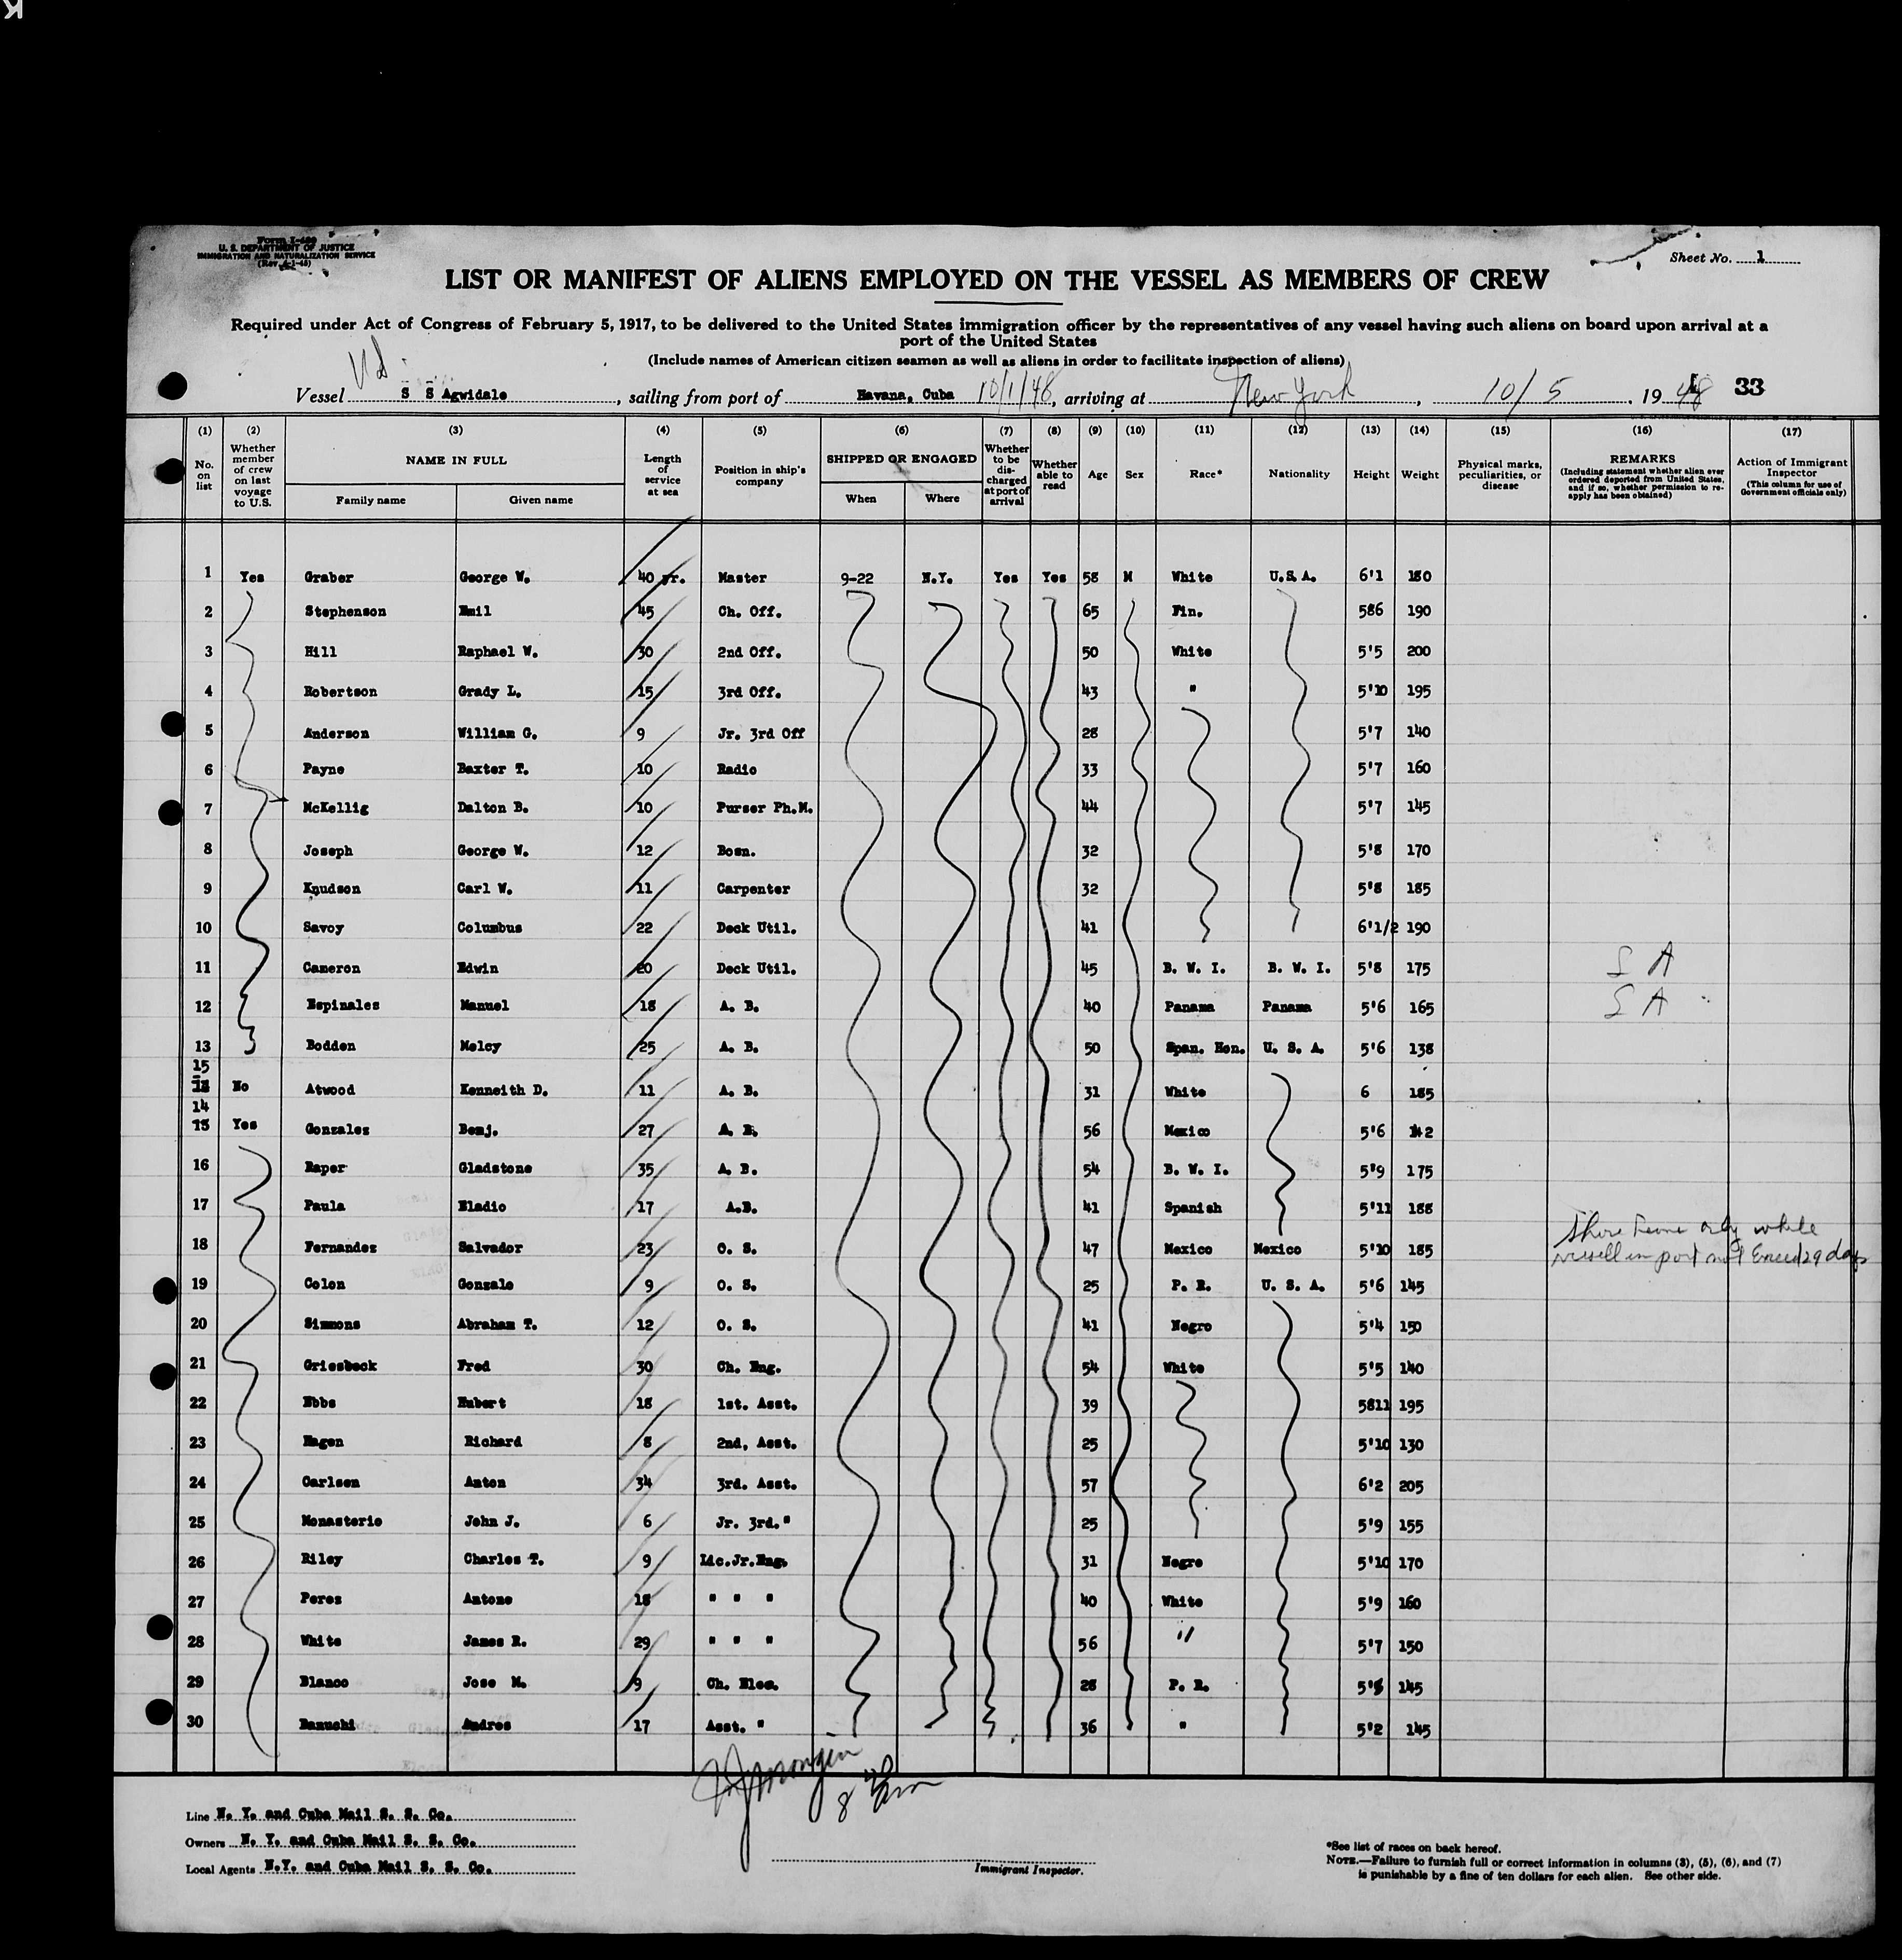 Form I-489
U. S. DEPARTMENT OF JUSTICE
IMMIGRATION AND NATURALIZATION SERVICE
(Rev. 4-1-45)
Sheet No. 1
LIST OR MANIFEST OF ALIENS EMPLOYED ON THE VESSEL AS MEMBERS OF CREW
Required under Act of Congress of February 5, 1917, to be delivered to the United States immigration officer by the representatives of any vessel having such aliens on board upon arrival at a
port of the United States
(Include names of American citizen seamen as well as aliens in order to facilitate inspection of aliens)
Vessel S S Agwidale, sailing from port of Havana, Cuba 10/1/48, arriving at New York, 10/5, 1948 33
(1) (2) (3) (4) (5) (6) (7) (8) (9) (10) (11) (12) (13) (14) (15) (16) (17)
No. on list Whether member of crew on last voyage to U.S. NAME IN FULL Family name Given name Length of service at sea Position in ship's company SHIPPED OR ENGAGED When Where Whether to be discharged at port of arrival Whether able to read Age Sex Race* Nationality Height Weight Physical marks, peculiarities, or disease REMARKS (Including statement whether alien ever ordered deported from United States, and if so, whether permission to re-apply has been obtained) Action of Immigrant Inspector (This column for use of Government officials only)
1 Yes Graber George W. 40 yr. Master 9-22 N.Y. Yes Yes 58 M White U.S.A. 6'1 180
2 Stephenson Emil 45 Ch. Off. 65 Fin. 586 190
3 Hill Raphael W. 30 2nd Off. 50 White 5'5 200
4 Robertson Grady L. 15 3rd Off. 43 " 5'10 195
5 Anderson William G. 9 Jr. 3rd Off 28 5'7 140
6 Payne Baxter T. 10 Radio 33 5'7 160
7 McKellig Dalton B. 10 Purser Ph.M. 44 5'7 145
8 Joseph George W. 12 Bosn. 32 5'8 170
9 Knudson Carl W. 11 Carpenter 32 5'8 185
10 Savoy Columbus 22 Deck Util. 41 6'1/2 190
11 Cameron Edwin 20 Deck Util. 45 B. W. I. B. W. I. 5'8 175 S A
12 Espinales Manuel 18 A. B. 40 Panama Panama 5'6 165 S A
13 Bodden Melcy 25 A. B. 50 Span. Hon. U. S. A. 5'6 138
15 No Atwood Kenneith D. 11 A. B. 31 White 6 185
14 Yes Gonzalez Benj. 27 A. B. 56 Mexico 5'6 142
16 Raper Gladstone 35 A. B. 54 B. W. I. 5'9 175
17 Paula Eladio 17 A.B. 41 Spanish 5'11 188
18 Fernandez Salvador 23 O. S. 47 Mexico Mexico 5'10 185 Shore Leave only while
vessell in port not Exceed 29 days
19 Colon Gonzalo 9 O. S. 25 P. R. U. S. A. 5'6 145
20 Simmons Abraham T. 12 O. S. 41 Negro 5'4 150
21 Griesbeck Fred 30 Ch. Eng. 54 White 5'5 140
22 Ebbs Hubert 18 1st. Asst. 39 5811 195
23 Hagen Richard 8 2nd, Asst. 25 5'10 130
24 Carlsen Anton 34 3rd. Asst. 57 6'2 205
25 Monasterio John J. 6 Jr. 3rd." 25 5'9 155
26 Riley Charles T. 9 Lic.Jr.Eng. 31 Negro 5'10 170
27 Peres Antone 18 " " " 40 White 5'9 160
28 White James R. 29 " " " 56 " 5'7 150
29 Blanco Jose M. 9 Ch. Elec. 28 P. R. 145
30 Banuchi Andres 17 Asst. " 36 " 5'2 145
Line N. Y. and Cuba Mail S. S. Co.
Owners N. Y. and Cuba Mail S. S. Co.
Local Agents N.Y. and Cuba Mail S. S. Co.
Immigrant Inspector.
*See list of races on back hereof.
NOTE.—Failure to furnish full or correct information in columns (3), (5), (6), and (7)
is punishable by a fine of ten dollars for each alien. See other side.